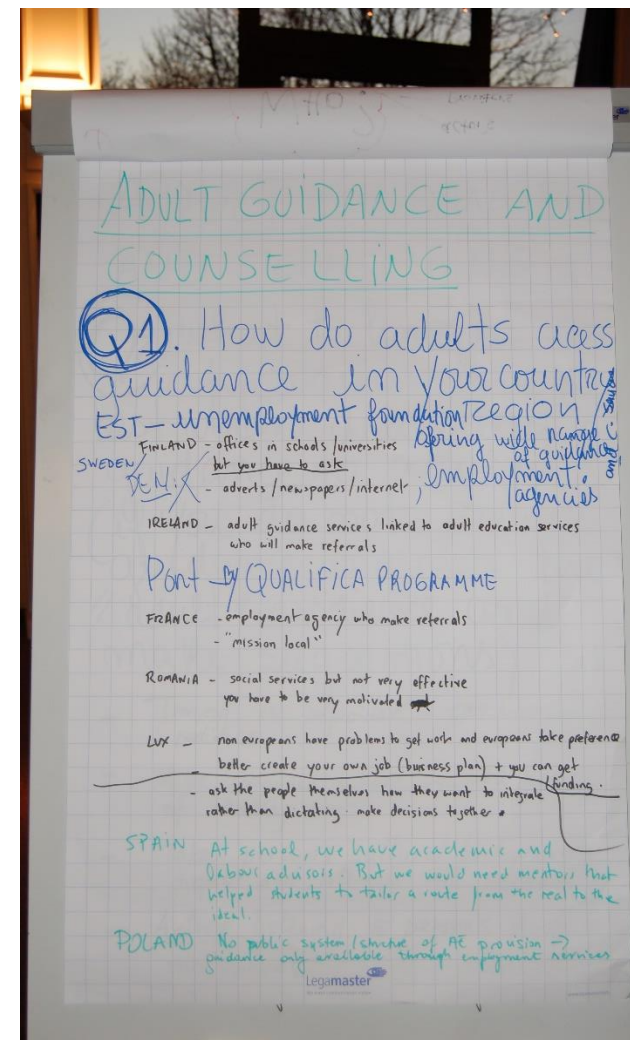 ADULT GUIDANCE AND
COUNSELLING
Q1. How do adults acess
guidance in your country
REGION /
EST - unemployment foundation
offring wide range
of guidance
and
; employment
agencies
FINLAND - offices in schools / universities
but you have to ask
SWEDEN
DEN
- adverts / newspapers / internet
IRELAND - adult guidance services linked to adult education services
who will make referrals
Port - by QUALIFICA PROGRAMME
FRANCE - employment agency who make referrals
- "mission local"
ROMANIA - social services but not very effective
you have to be very motivated
LUX - non europeans have problems to get work and europeans take preference
- better create your own job (buisness plan) + you can get
funding.
- ask the people themselves how they want to integrate
rather than dictating. make decisions together.
SPAIN At school, we have academic and
labour advisors. But we would need mentors that
helped students to tailor a route from the real to the
ideal.
POLAND No public system/structure of AE provision →
guidance only available through employment services
Legamaster